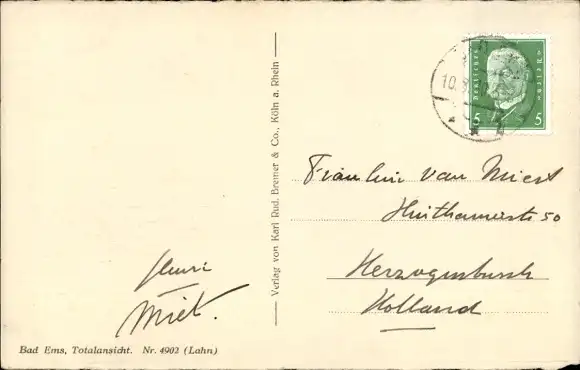 Deutsches Reich
5 5
10.
Verlag von Karl Rud. Bremer & Co., Köln a. Rhein
Fräulein van Miert
Hinthamerstr 50
Herzogenbusch
Holland
Henri
Miert.
Bad Ems, Totalansicht. Nr. 4902 (Lahn)